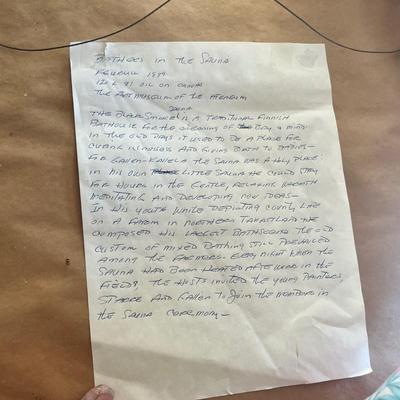 BATHERS in the SAUNA
KEURUU 1889
120 x 81 OIL on CANVAS
THE ART MUSEUM OF THE ATENEUM
SAUNA
THE BLACK SMOKE IS A TRADITIONAL FINNISH
BATHOUSE FOR the CLEANING OF BODY & MIND.
IN the OLD DAYS IT USED TO BE A PLACE FOR
CURING ILLNESSES AND GIVING BIRTH TO BABIES—
FOR GALLEN-KALLELA the SAUNA WAS A HOLY PLACE
IN HIS OWN LITTLE SAUNA HE COULD STAY
FOR HOURS IN the GENTLE, RELAXING WARMTH
MEDITATING AND DEVELOPING NEW IDEAS—
IN HIS YOUTH WHILE DEPICTING COUNTRY LIFE
ON A FARM IN NORTHERN TAVASTLAND HE
COMPOSED HIS LARGEST BATHSCENE the OLD
CUSTOM OF MIXED BATHING STILL PREVAILED
AMONG the FARMERS. EVERY NIGHT WHEN THE
SAUNA HAD BEEN HEATED AFTER WORK IN the
FIELDS, the HOSTS INVITED the YOUNG PAINTERS,
AND GALLEN to JOIN the MEMBERS IN
the SAUNA CEREMONY—